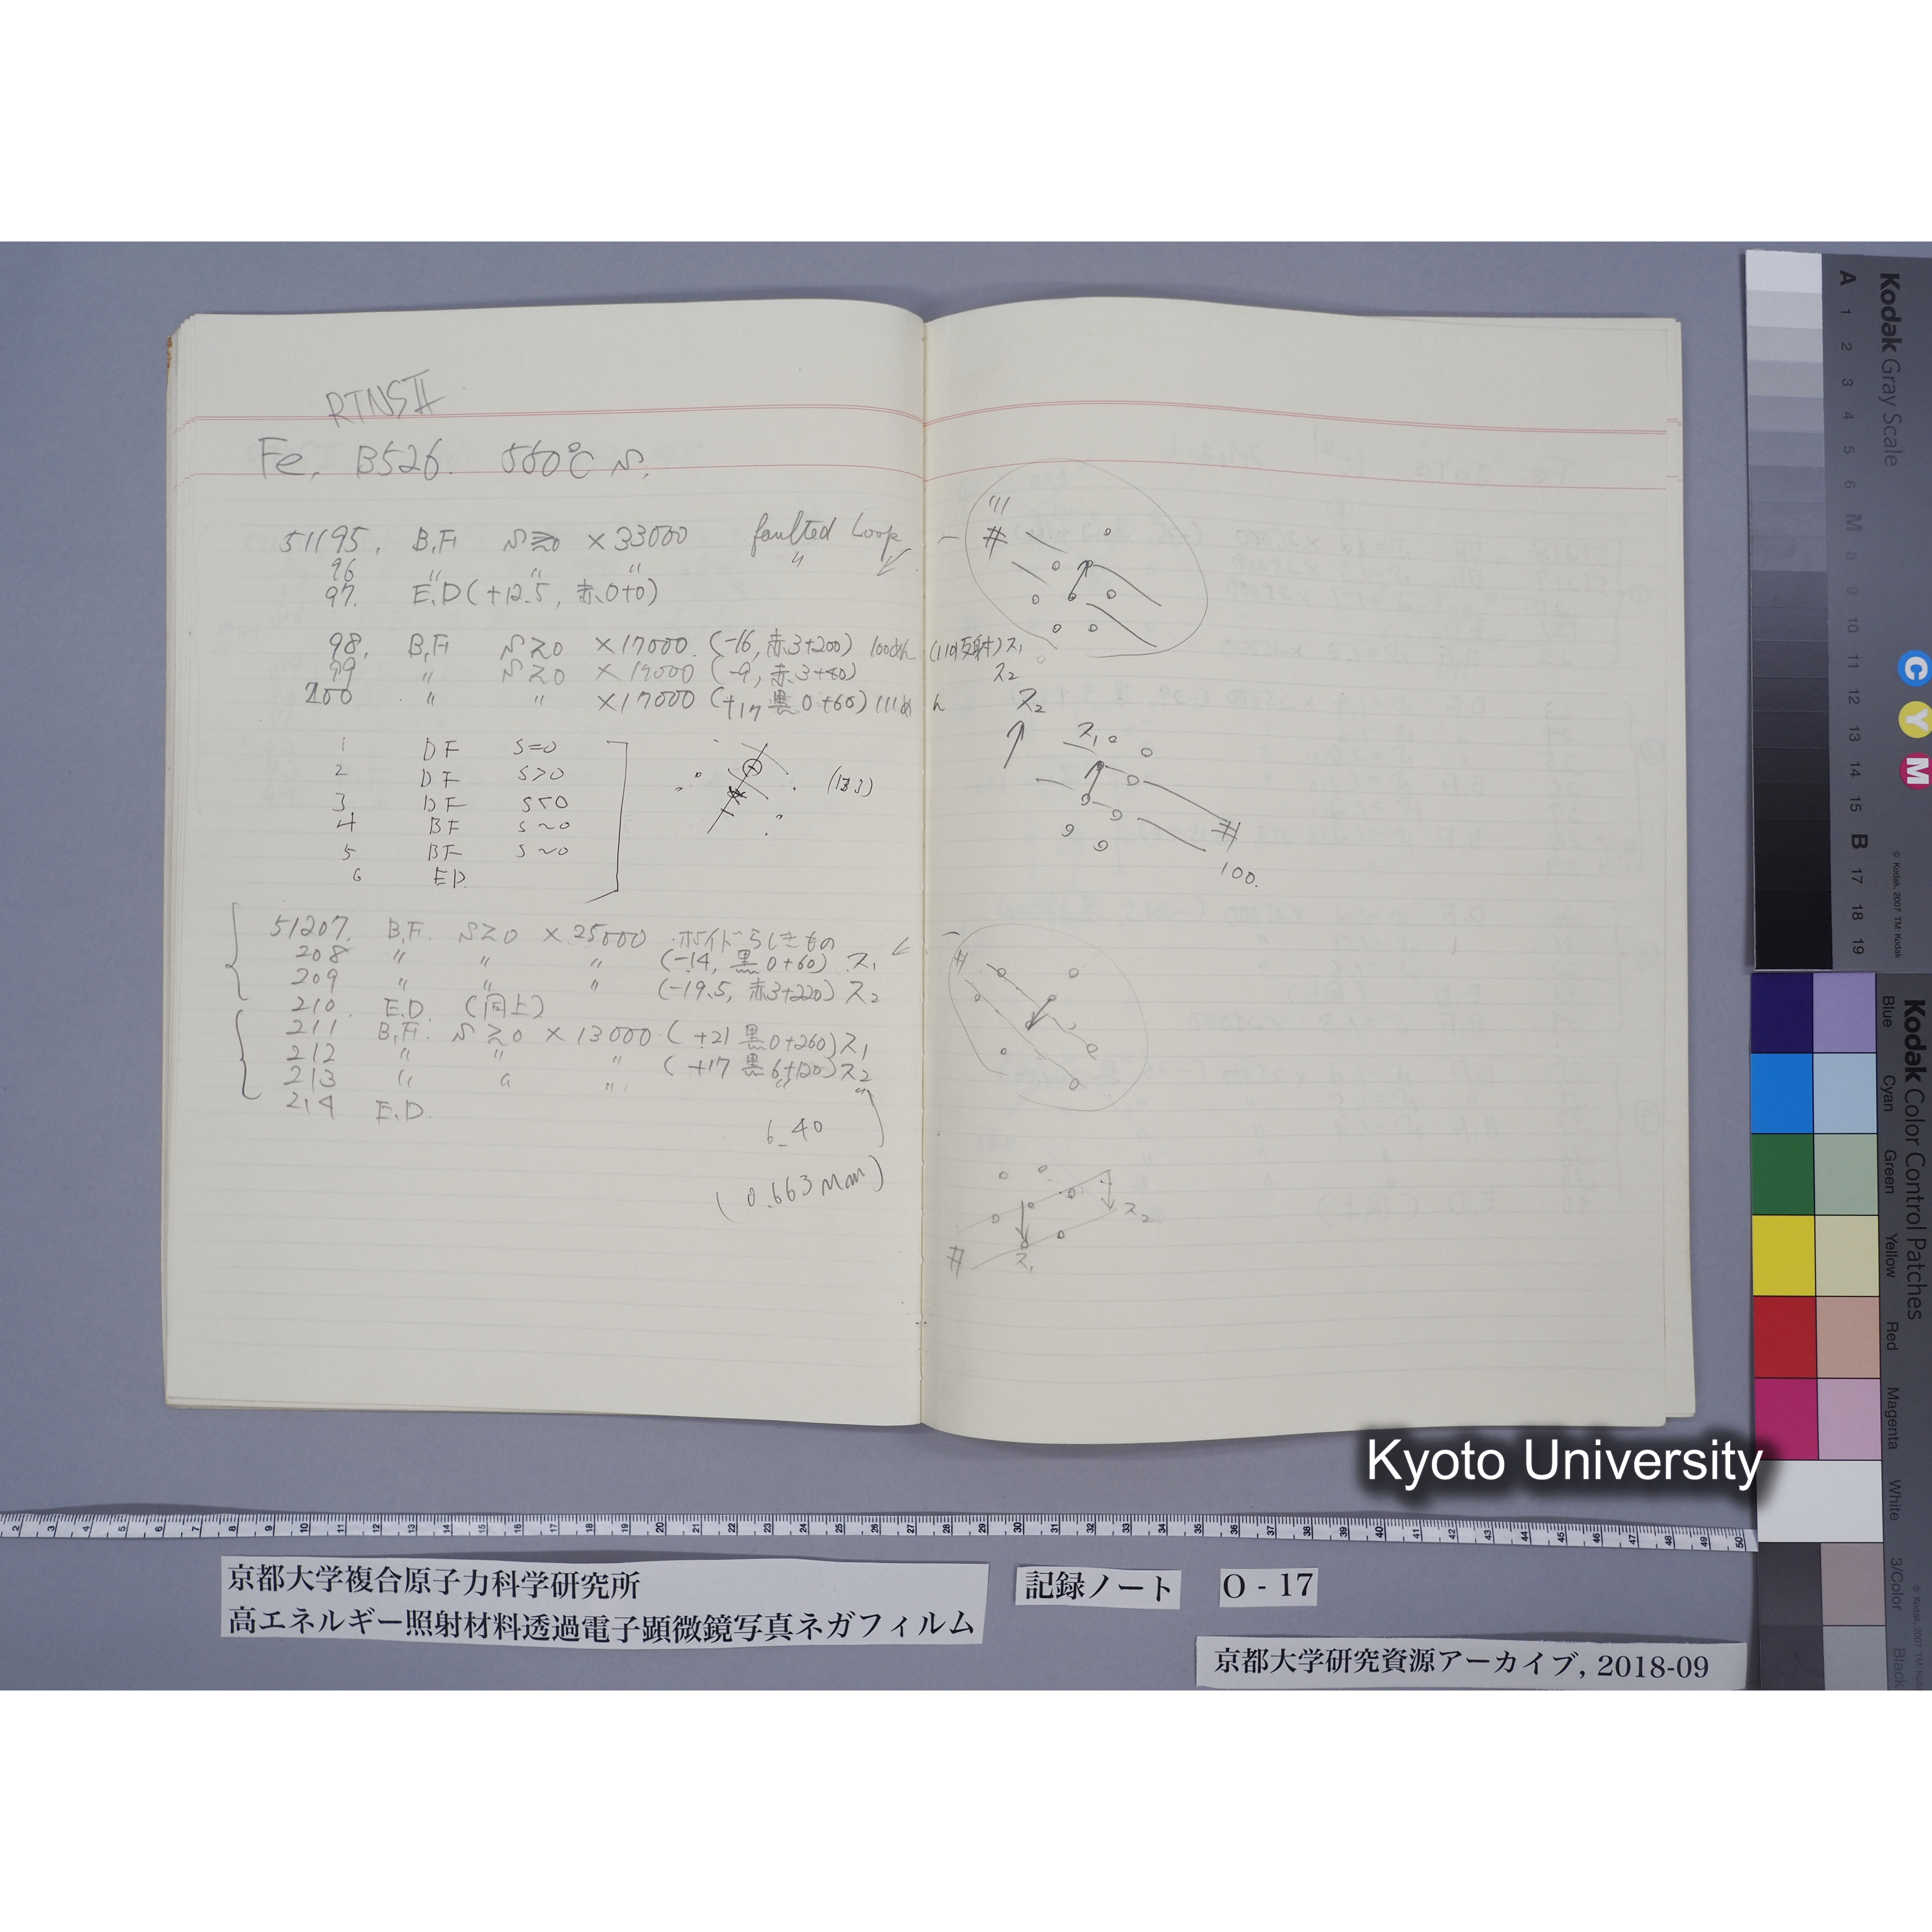 RTNSⅡ
Fe, B526. 560℃ S,
51195, B.F. S≷0 ×33000 faulted Loop
96 〃 〃 〃 〃
97. E.D (+12.5, 赤0+0)
98, B.F. S≷0 ×17000. (-16, 赤3+200) 100めん (110反射) ス1
99 〃 S≷0 ×17000 (-9, 赤3+80) ス2
200 〃 〃 ×17000 (+17 黒0+60) 111めん
1 DF S=0
2 DF S>0
3 DF S<0
4 BF S~0
5 BF S~0
6 ED.
51207, B.F. S≷0 ×25000 ボイドらしきもの
208 〃 〃 〃 (-14, 黒0+60) ス1
209 〃 〃 〃 (-19.5, 赤3+220) ス2
210. E.D. (同上)
211 B.F. S≷0 ×13000 (+21 黒0+260) ス1
212 〃 〃 〃 (+17 黒6+120) ス2
213 〃 〃 〃 〃 〃
214 E.D.
6_40
(0.663 Mm)
111
#
ス2
ス1
#
100.
#
ス2
#
ス1
Kyoto University
京都大学複合原子力科学研究所
高エネルギー照射材料透過電子顕微鏡写真ネガフィルム
記録ノート
O - 17
京都大学研究資源アーカイブ, 2018-09
Kodak Gray Scale
A 1 2 3 4 5 6 M 8 9 10 11 12 13 14 15 B 17 18 19
C Y M
Kodak Color Control Patches
Blue Cyan Green Yellow Red Magenta White 3/Color Black
© Kodak, 2007 TM: Kodak